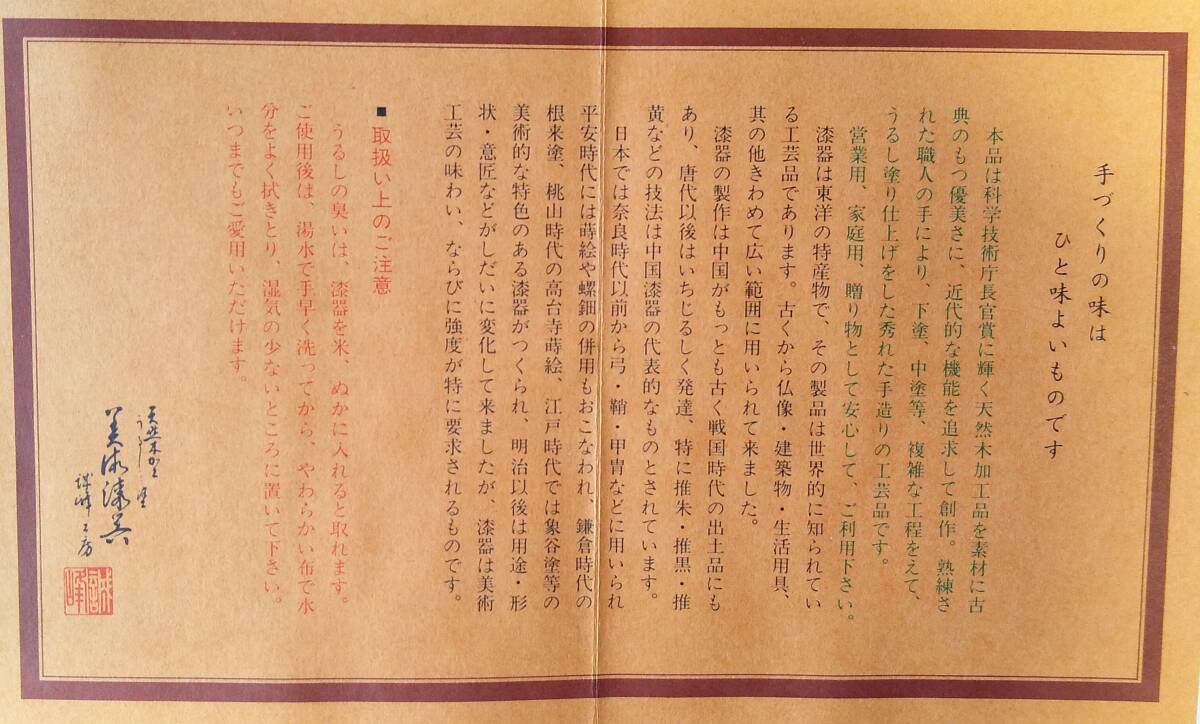 手づくりの味は
ひと味よいものです
本品は科学技術庁長官賞に輝く天然木加工品を素材に古
典のもつ優美さに、近代的な機能を追求して創作。熟練さ
れた職人の手により、下塗、中塗等、複雑な工程をえて、
うるし塗り仕上げをした秀れた手造りの工芸品です。
営業用、家庭用、贈り物として安心して、ご利用下さい。
漆器は東洋の特産物で、その製品は世界的に知られてい
る工芸品であります。古くから仏像・建築物・生活用具、
其の他きわめて広い範囲に用いられて来ました。
漆器の製作は中国がもっとも古く戦国時代の出土品にも
あり、唐代以後はいちじるしく発達、特に推朱・推黒・推
黄などの技法は中国漆器の代表的なものとされています。
日本では奈良時代以前から弓・鞘・甲冑などに用いられ
平安時代には蒔絵や螺鈿の併用もおこなわれ、鎌倉時代の
根来塗、桃山時代の高台寺蒔絵、江戸時代では象谷塗等の
美術的な特色のある漆器がつくられ、明治以後は用途・形
状・意匠などがしだいに変化して来ましたが、漆器は美術
工芸の味わい、ならびに強度が特に要求されるものです。
■取扱い上のご注意
うるしの臭いは、漆器を米、ぬかに入れると取れます。
ご使用後は、湯水で手早く洗ってから、やわらかい布で水
分をよく拭きとり、湿気の少ないところに置いて下さい。
いつまでもご愛用いただけます。
天然木加工
うるし塗
美術漆器
峰工房